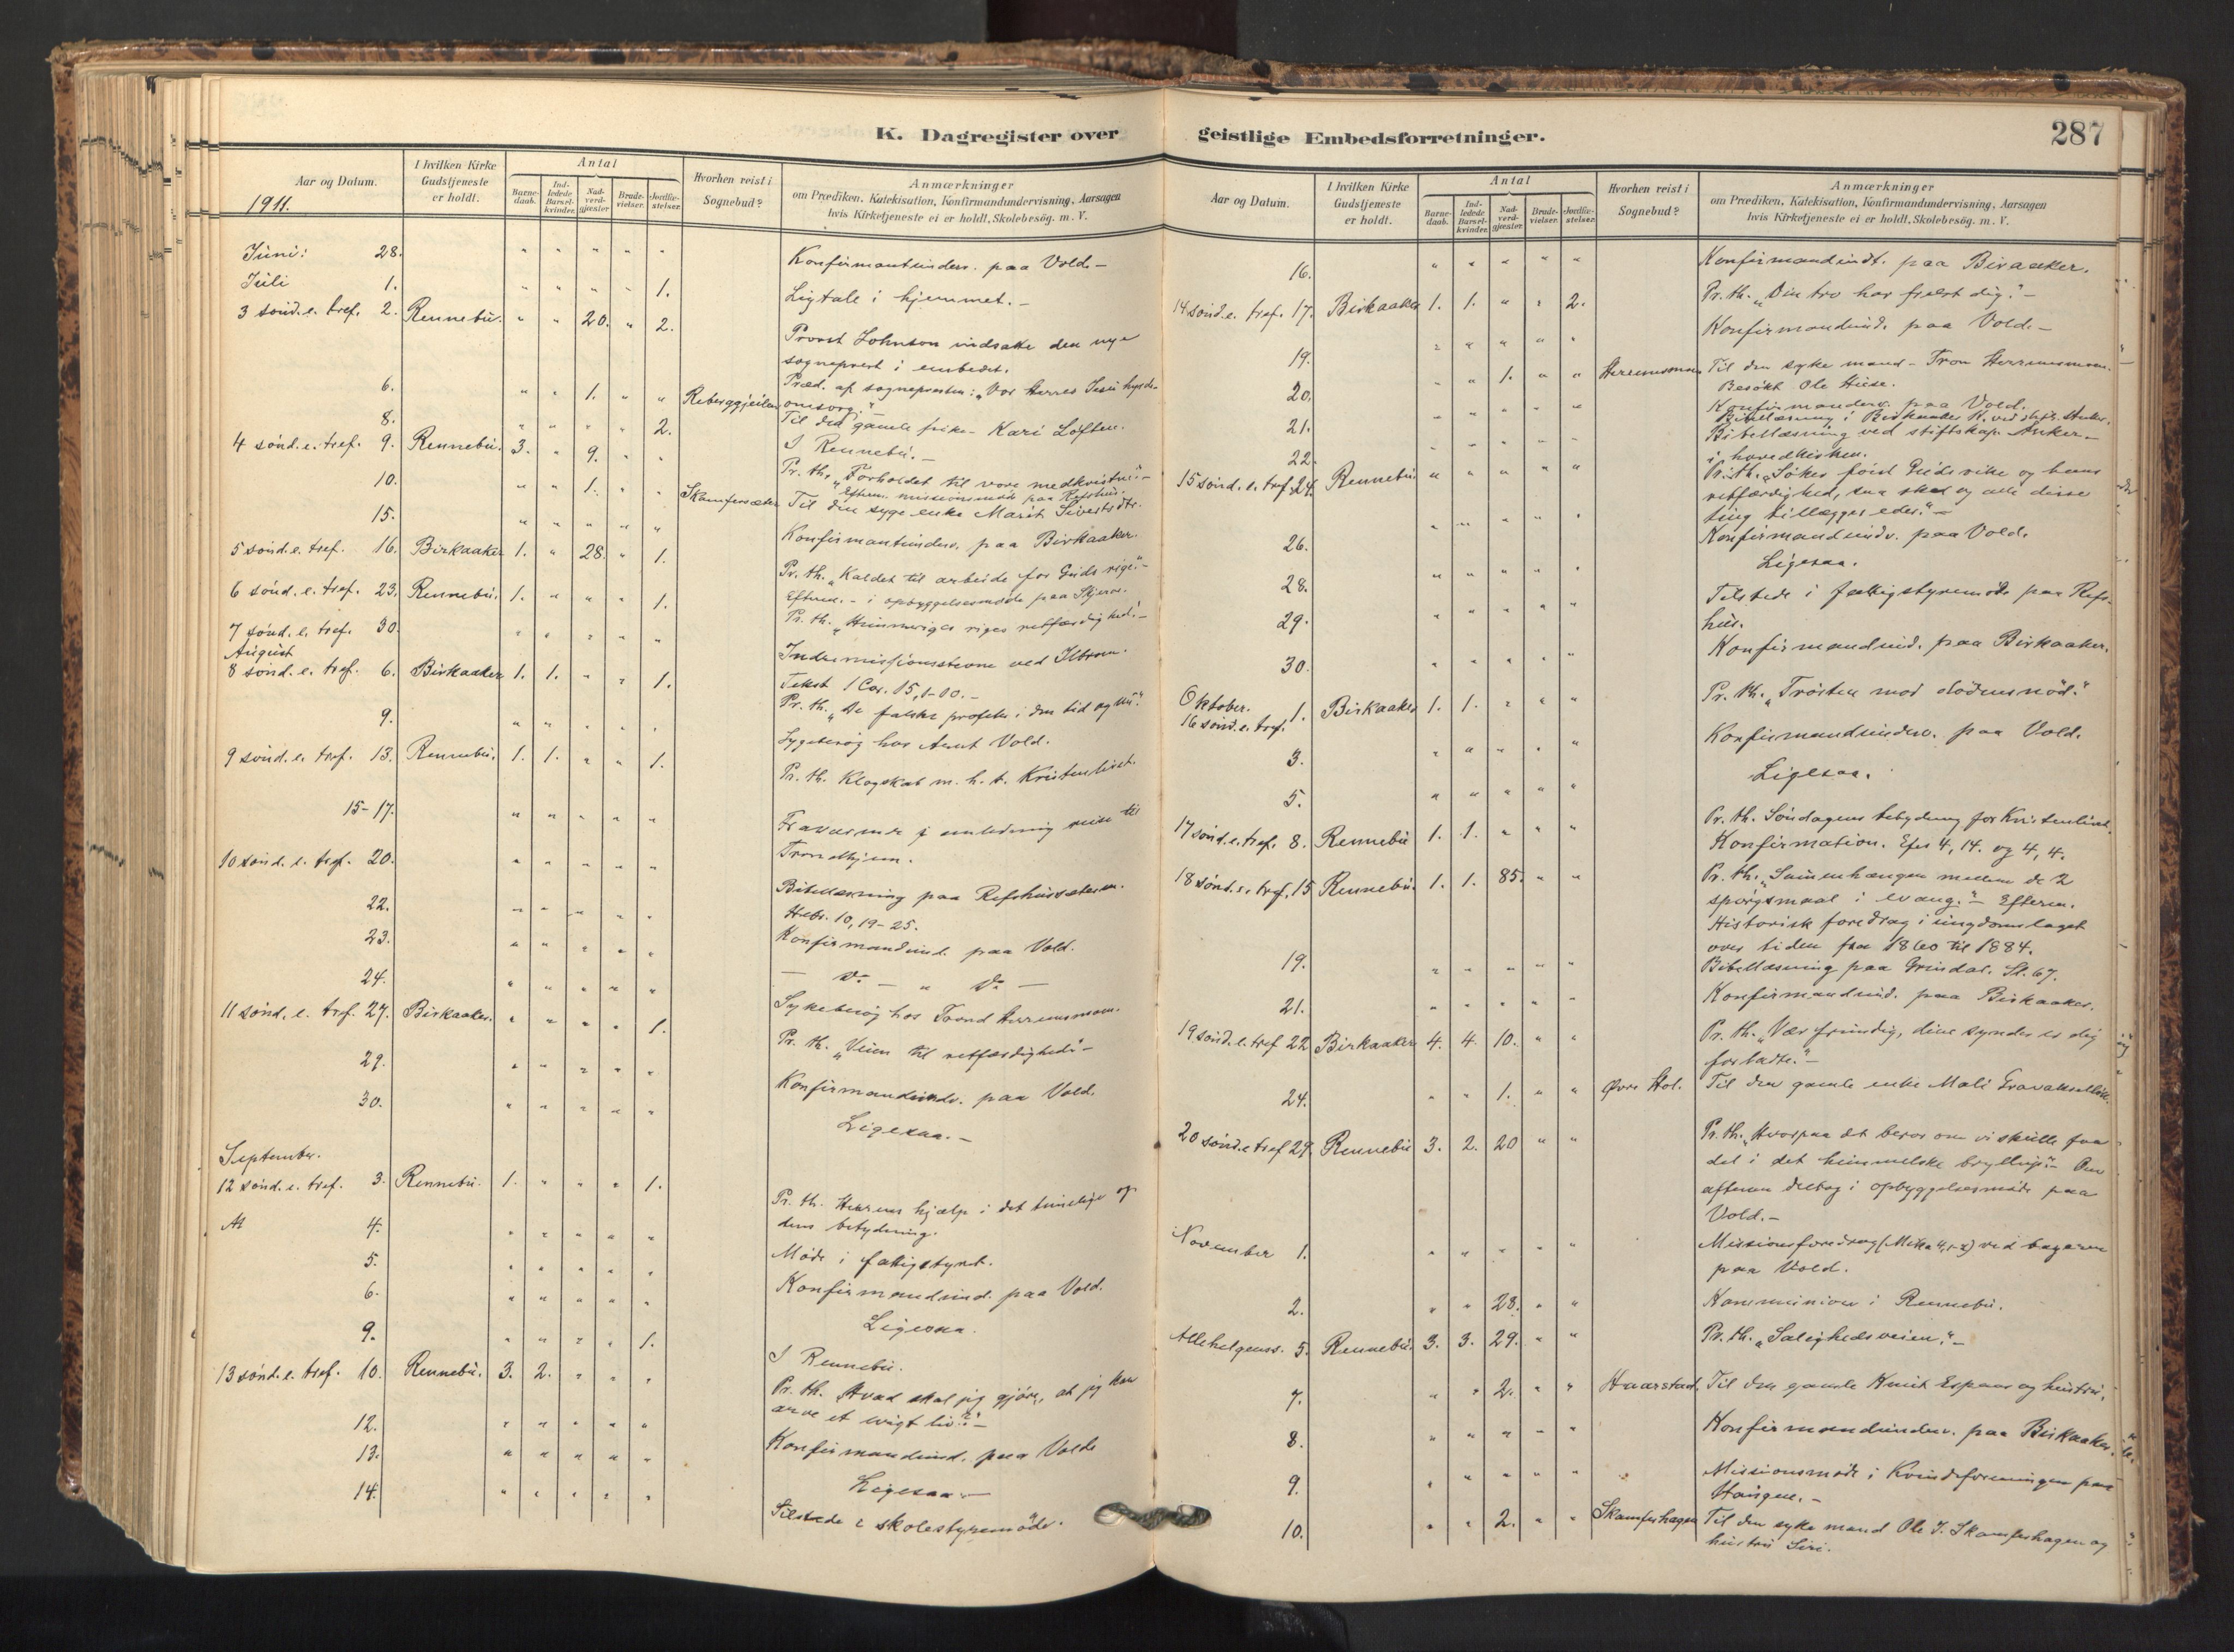 K. Dagregister over
Aar og Datum.
1911.
I hvilken Kirke
Gudstjeneste
er holdt.
Antal
Barne-
daab.
Ind-
ledede
Barsel-
kvinder.
Nad-
verd-
gjæster
Brude-
vielser.
Jordfæ-
stelser.
Hvorhen reist i
Sognebud?
Anmærkninger
om Prædiken, Katekisation, Konfirmandundervisning, Aarsagen
hvis Kirketjeneste ei er holdt, Skolebesög. m. V.
Juni: 28. " " " " " Konfirmantunderv. paa Vold. -
Juli 1. " " " " 1. Ligtale i hjemmet. -
3 sönd. e. tref. 2. Rennebu. " " 20. " 2. Provst Johnson indsatte den nye
sogneprest i embedet.
Præd. af sognepresten: "Vor Herres Jesu hyrde-
omsorg." -
6. " " 1. " " Til den gamle Kari Löften.
8. " " " " 2. I Rennebu. -
4 sönd. e. tref. 9. Rennebu. 3. " 9. " " Pr. th. "Forholdet til vore medkristne." -
Efterm. missionsmöde paa Refshus.
10. " " 1. " " Skamfersæter Til den syge enke Marit Sivertsdtr.
15. " " " " " Konfirmantunderv. paa Birkaaker.
5 sönd. e. tref. 16. Birkaaker 1. " 28. " 1. Pr. th. "Kaldet til arbeide for Guds rige." -
Efterm. - i opbyggelsesmöde paa
6 sönd. e. tref. 23. Rennebu. 1. " " " 1. Pr. th. "Himmeriges riges retfærdighed." -
7 sönd. e. tref. 30. " " " " " Indremissionsstevne ved
Tekst 1 Cor. 15, 1-10. -
August
8 sönd. e. tref. 6. Birkaaker 1. 1. " " 1. Pr. th. "De falske profeter i den tid og nu."
9. " " " " " Sygebesög hos Vold.
9 sönd. e. tref. 13. Rennebu. 1. 1. " " 1. Pr. th. Klogskab m. h. t. Kristenlivet.
15-17. " " " " " Fraværende i anledning reise til
Trondhjem.
10 sönd. e. tref. 20. " " " " " Bibellæsning paa Refshussæteren.
Hebr. 10, 19-25.
22. " " " " " Konfirmandund. paa Vold.
23. " " " " " — Do — " Do —
24. " " " " " Sykebesög hos Trond
11 sönd. e. tref. 27. Birkaaker. " " " " 1. Pr. th. "Veien til retfærdighed." -
29. " " " " " Konfirmandunderv. paa Vold.
30. " " " " " Ligesaa. -
September.
12 sönd. e. tref. 3. Rennebu. 1. " " " 1. Pr. th. Herrens hjælp i det timelige og
dens betydning.
4. " " " " " Möde i fattigstyret.
5. " " " " " Konfirmandund. paa Vold.
6. " " " " " Ligesaa.
9. " " " " 1. I Rennebu.
13 sönd. e. tref. 10. Rennebu. 3. 2. " " " Pr. th. "Hvad skal jeg gjöre, at jeg kan
arve et evigt liv?" -
12. " " " " " Konfirmandund. paa Vold
13. " " " " " Ligesaa. -
14. " " " " " Tilstede i skolestyremöde.
geistlige Embedsforretninger.
287
Aar og Datum.
I hvilken Kirke
Gudstjeneste
er holdt.
Antal
Barne-
daab.
Ind-
ledede
Barsel-
kvinder.
Nad-
verd-
gjæster
Brude-
vielser.
Jordfæ-
stelser.
Hvorhen reist i
Sognebud?
Anmærkninger
om Prædiken, Katekisation, Konfirmandundervisning, Aarsagen
hvis Kirketjeneste ei er holdt, Skolebesög. m. V.
16. " " " " " Konfirmandundt. paa Biraaker.
14 sönd. e. tref. 17. Birkaaker 1. 1. " " 2. Pr. th. "Din tro har frelst dig." -
19. " " " " " Konfirmandund. paa Vold. -
20. " " 1. " " Til den syke mand - Tron
Besökt Ole Huse.
21. " " " " " Konfirmanderv. paa Vold.
Bibellæsning i Birkaaker K. ved stiftskap. Anker.
22. " " " " " Bibellæsning ved stiftskap. Anker -
i hovedkirken.
15 sönd. e. tref. 24. Rennebu " " " " " Pr. th. "Söker först Guds rike og hans
retfærdighed, saa skal og alle disse
ting tillægges eder." -
26. " " " " " Konfirmandundv. paa Vold.
28. " " " " " Ligesaa.
29. " " " " " Tilstede i fattigstyremöde paa Refs-
hus.
30. " " " " " Konfirmandund. paa Birkaaker.
Oktober.
16 sönd. e. tref. 1. Birkaaker 1. 1. " " " Pr. th. "Trösten mod dödens nöd."
3. " " " " " Konfirmandunderv. paa Vold.
5. " " " " " Ligesaa.
17 sönd. e. tref. 8. Rennebu 1. 1. " " " Pr. th. Söndagens betydning for Kristenlivet.
Konfirmation. Efes 4, 14. og 4, 4.
18 sönd. e. tref. 15 Rennebu. 1. 1. 85. " " Pr. th. "Samenhængen mellem de 2
spörgsmaal i evang." - Efterm.
Historisk foredrag i ungdomslaget
over tiden fra 1860 til 1884.
19. " " " " " Bibellæsning paa Grindal. Sl. 67.
21. " " " " " Konfirmandund. paa Birkaaker.
19 sönd. e. tref 22 Birkaaker 4. 4. 10. " " Pr. th. "Vær frimodig, dine synder er dig
forladte." -
24. " " 1. " " Övre Hol. Til den gamle enke Mali
20 sönd. e tref 29. Rennebu 3. 2. 20 " " Pr. th. "Hvorpaa det beror om vi skulle faa
del i det himmelske bryllup." - Om
aftenen deltog i opbyggelsesmöde paa
Vold. -
November 1. " " " " " Missionsforedrag (Mika 4, 1-2) ved
paa Vold.
2. " " 28. " " Kommunion i Rennebu.
Allehelgenss. 5. Rennebu. 3. 3. 29. " " Pr. th. "Salighedsveien." -
7. " " 2. " " Haarstad. Til den gamle Knut Espaas og hustru.
8. " " " " " Konfirmandunderv. paa Birkaaker.
9. " " " " " Missionsmöde i Kvindeforeningen paa
Haugen. -
10. " " 2. " " Skamferhagen Til den syke mand Ole J. Skamferhagen og
hustru Siri.